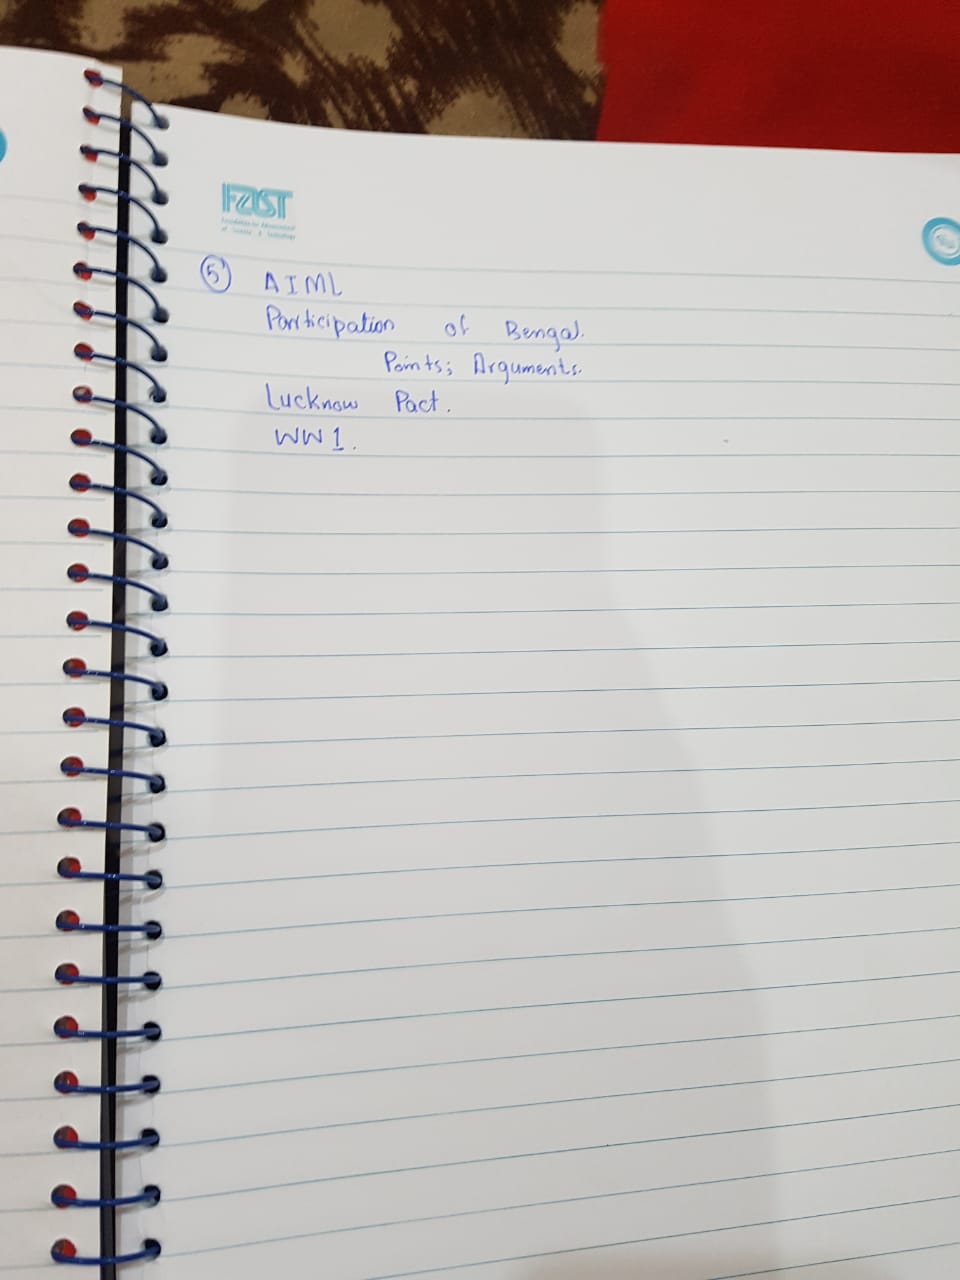 FAST
Foundation for Advancement
of Science & Technology
5 AIML
Participation of Bengal.
Points; Arguments.
Lucknow Pact.
WW1.